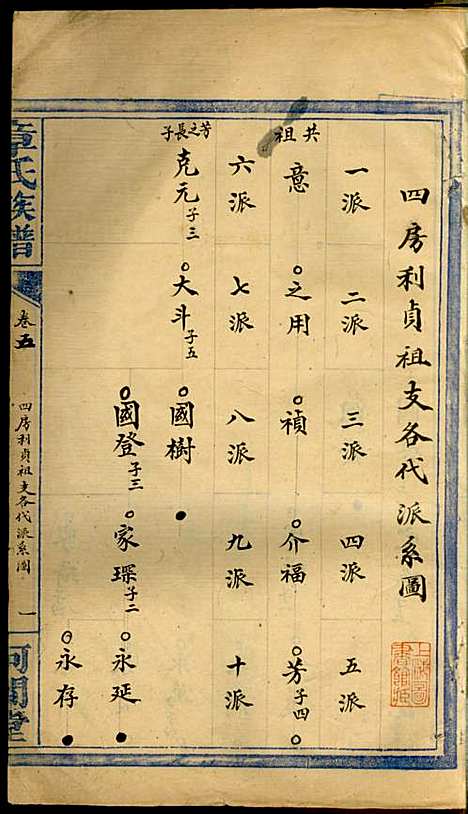 四房利貞祖支各代派系圖
一派 二派 三派 四派 五派
共祖
意 之用 禎 介福 芳子四
六派 七派 八派 九派 十派
芳之長子
克元子三 大斗子五 國樹
國登子三 家琛子二 永延
永存
章氏族譜 卷五 四房利貞祖支各代派系圖 一 河間堂